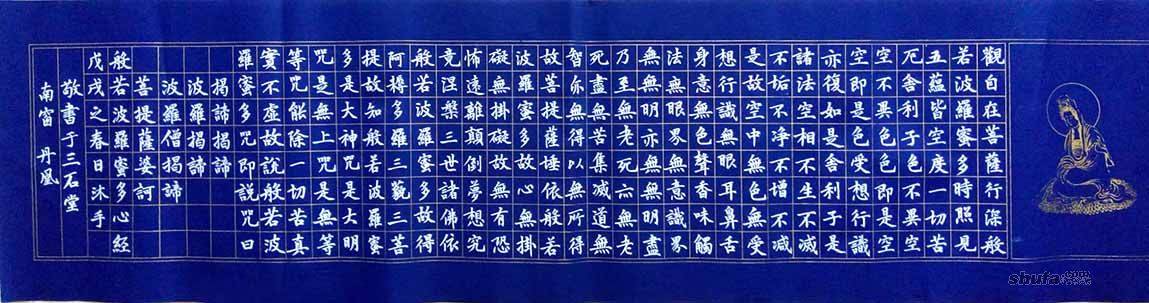 觀自在菩薩行深般
若波羅蜜多時照見
五蘊皆空度一切苦
厄舍利子色不異空
空不異色色即是空
空即是色受想行識
亦復如是舍利子是
諸法空相不生不滅
不垢不淨不增不減
是故空中無色無受
想行識無眼耳鼻舌
身意無色聲香味觸
法無眼界無意識界
無無明亦無無明盡
乃至無老死亦無老
死盡無苦集滅道無
智亦無得以無所得
故菩提薩埵依般若
波羅蜜多故心無掛
礙無掛礙故無有恐
怖遠離顛倒夢想究
竟涅槃三世諸佛依
般若波羅蜜多故得
阿耨多羅三藐三菩
提故知般若波羅蜜
多是大神咒是大明
咒是無上咒是無等
等咒能除一切苦真
實不虛故說般若波
羅蜜多咒即說咒曰
揭諦揭諦
波羅揭諦
波羅僧揭諦
菩提薩婆訶
般若波羅蜜多心經
戊戌之春日沐手
敬書于三石堂
南窗 丹凰
shufa.com